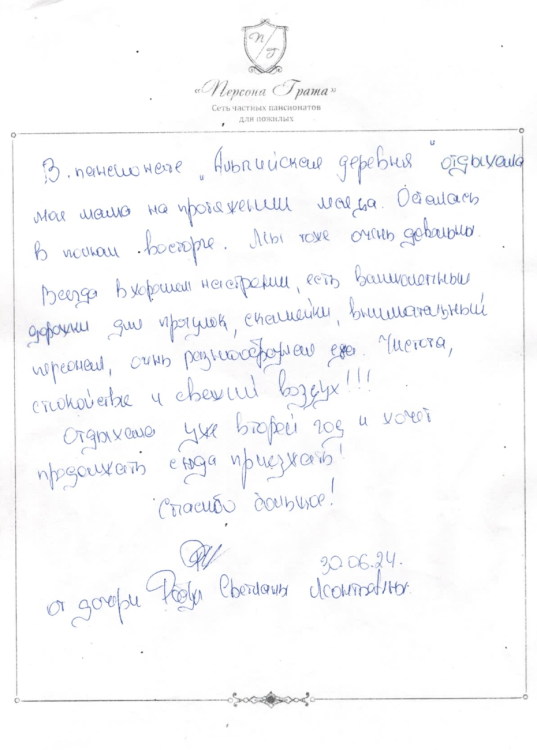 П
Г
«Персона Грата»
Сеть частных пансионатов
для пожилых
В пансионате „Альпийская деревня" отдыхала
моя мама на протяжении месяца. Осталась
в полном восторге. Мы тоже очень довольны.
Всегда в хорошем настроении, есть великолепные
дорожки для прогулок, скамейки, внимательный
персонал, очень разнообразная еда. Чистота,
спокойствие и свежий воздух!!!
Отдыхала уже второй год и хочет
продолжать сюда приезжать!
Спасибо большое!
30.06.24.
от дочери Светланы Леонтьевны.